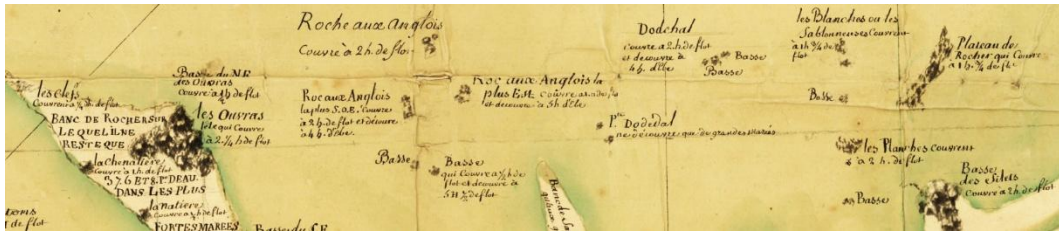 Roche aux Anglois
Couvre à 2h. de flot
Dodehal
couvre a 2h. de flot
et decouvre à
4h. d'ebe
Basse
Basse
les Blanches ou les
Sablonneuses Couvrent
à 1h ¾ de
flot
Plateau de
Rocher qui Couvre
a 1h. ¾ de fl.
Basse
les Clefs
Couvrent de flot
Basse du N.E.
des Ouvras
Couvre à 1h de flot
les Ouvras
Isle qui Couvre
a 2.¼ h de flot
BANC DE ROCHER SUR
LEQUEL IL NE
RESTE QUE
la Chenaliere
Couvre a 2h. de flot
3.7.6 ET 8.P. DEAU.
DANS LES PLUS
la natiere
Couvre a h de flot
FORTES MARÉES
Basse du S.E.
de flot
Roc aux Anglois
la plus S.O.E. Couvre
a 2h. de flot et decouvre
a 4h. d'ebe.
Roc aux Anglois la
plus Est. Couvre
et decouvre à 5h d'Ebe
Basse
Basse
qui Couvre a h de
flot et decouvre à
5H ½ de flot
Banc de
Pte. Dodedal
ne decouvre que de grandes Marées
les Planches couvrent
à 2h. de flot
Basse
Basse
des Filets
Couvre a 2h. de flot